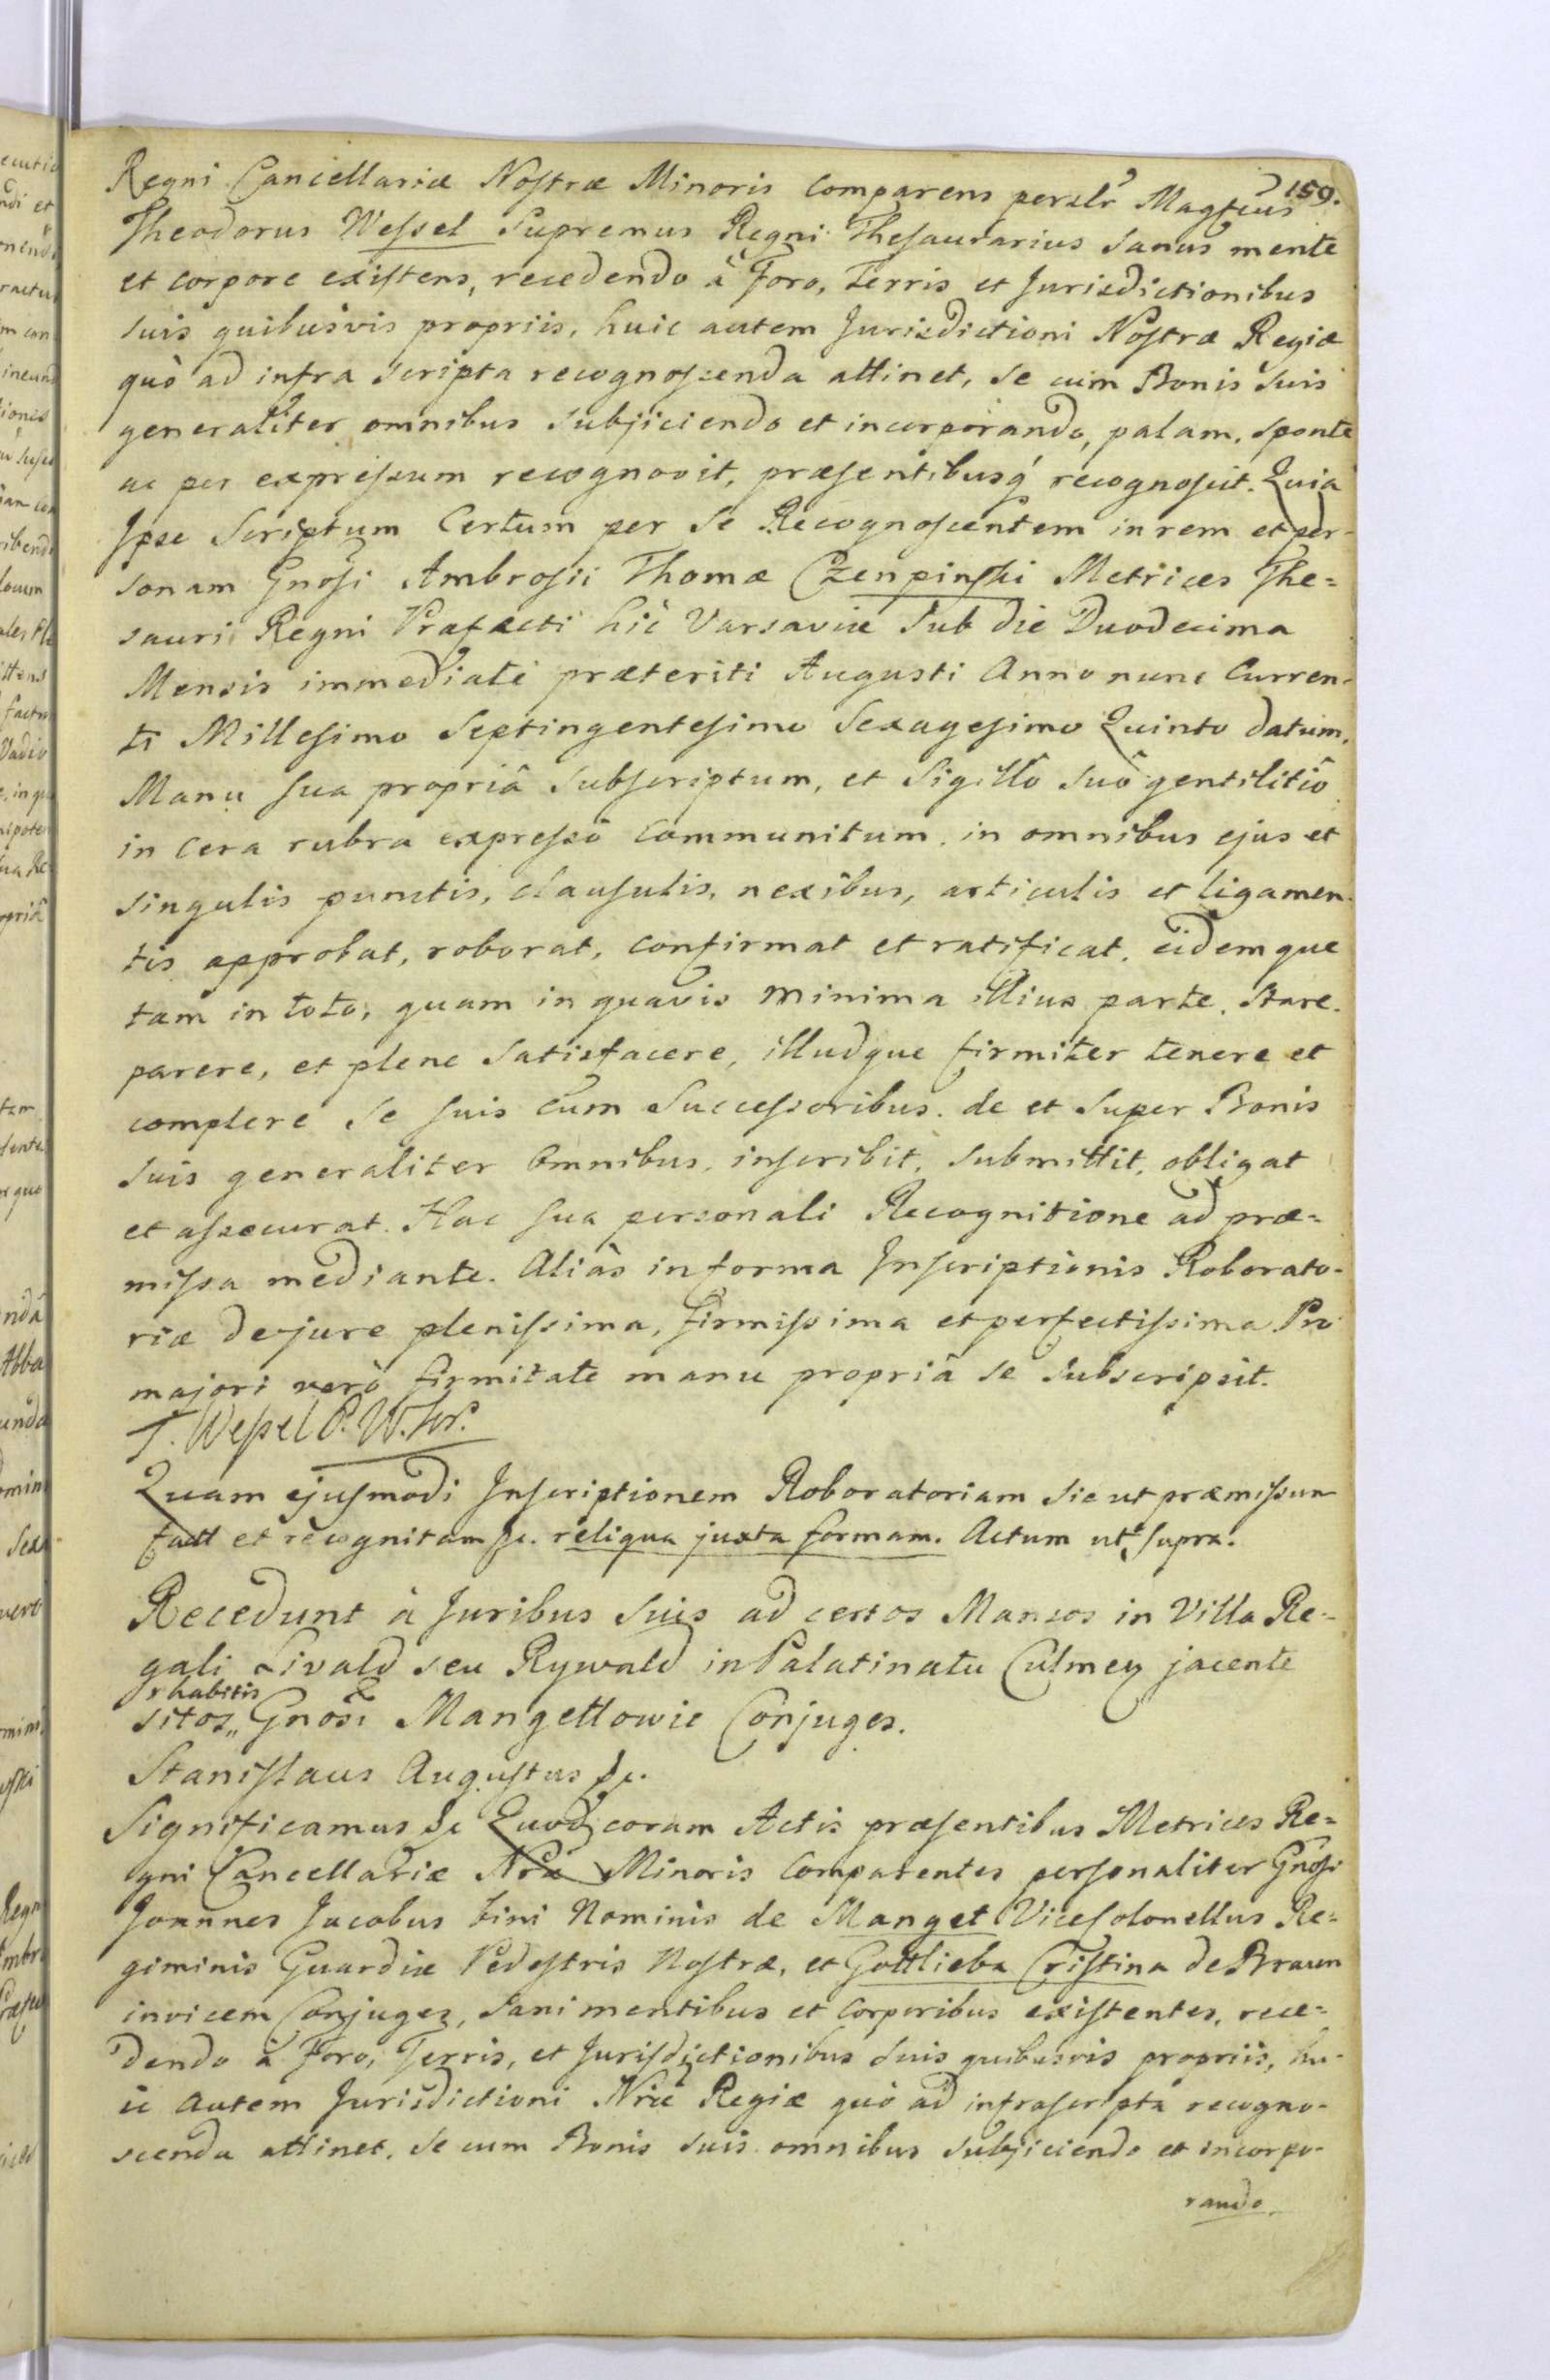 159.
Regni Cancellariæ Nostræ Minoris comparens perslr Magfcus
Theodorus Wessel Supremus Regni Thesaurarius sanus mente
et corpore existens, recedendo à Foro, Terris et Jurisdictionibus
suis quibusvis propriis, huic autem Jurisdictioni Nostræ Regiæ
quò ad infra scripta recognoscenda attinet, se cum Bonis suis
generaliter omnibus subjiciendo et incorporando, palam, sponte
ac per expressum recognovit, præsentibusq́ recognoscit. Quia
Ipse Scriptum Certum per se Recognoscentem in rem et per-
sonam Gnosi Ambrosii Thomæ Czenpinski Metrices The=
sauri Regni Præfecti hìc Varsaviæ sub die Duodecima
Mensis immediatè præteriti Augusti Anno nunc Curren-
ti Millesimo Septingentesimo Sexagesimo Quinto datum,
Manu sua propriâ subscriptum, et Sigillô suô gentilitiô
in cera rubra expressô communitum, in omnibus ejus et
singulis punctis, clausulis, nexibus, articulis et ligamen-
tis approbat, roborat, confirmat et ratificat, eidemque
tam in toto, quam in quavis minima illius parte, stare,
parere, et plene satisfacere, illudque firmiter tenere et
complere se suis cum Successoribus, de et super Bonis
suis generaliter omnibus, inscribit, submittit, obligat
et assecurat. Hac sua personali Recognitione ad præ=
missa mediante. Aliàs in forma Inscriptionis Roborato-
riæ de jure plenissima, firmissima et perfectissima. Pro
majori verò firmitate manu propriâ se subscripsit.
T. Wessel P. W. Kr.
Quam ejusmodi Inscriptionem Roboratoriam sic ut præmissum
fact et recognitam &c. reliqua juxta formam. Actum ut supra.
Recedunt à Juribus suis ad certos Mansos in Villa Re-
gali Livald seu Rywald in Palatinatu Culmen jacente
rhabitis
sitos,, Gnosi Mangettowie Conjuges.
Stanislaus Augustus &c.
Significamus &c Quod coram Actis præsentibus Metrices Re=
gni Cancellariæ Nræ Minoris comparentes personaliter Gnosi
Joannes Jacobus bini Nominis de Manget Vicecolonellus Re=
giminis Guardiæ Pedestris Nostræ, et Gottlieba Cristina de Braun
invicem Conjuges, sani mentibus et corporibus existentes, rece=
dendo à Foro, Terris, et Jurisdictionibus suis quibusvis propriis, hu-
ic autem Jurisdictioni Nræ Regiæ quò ad infrascripta recogno-
scenda attinet, se cum Bonis suis omnibus subjiciendo et incorpo-
rando